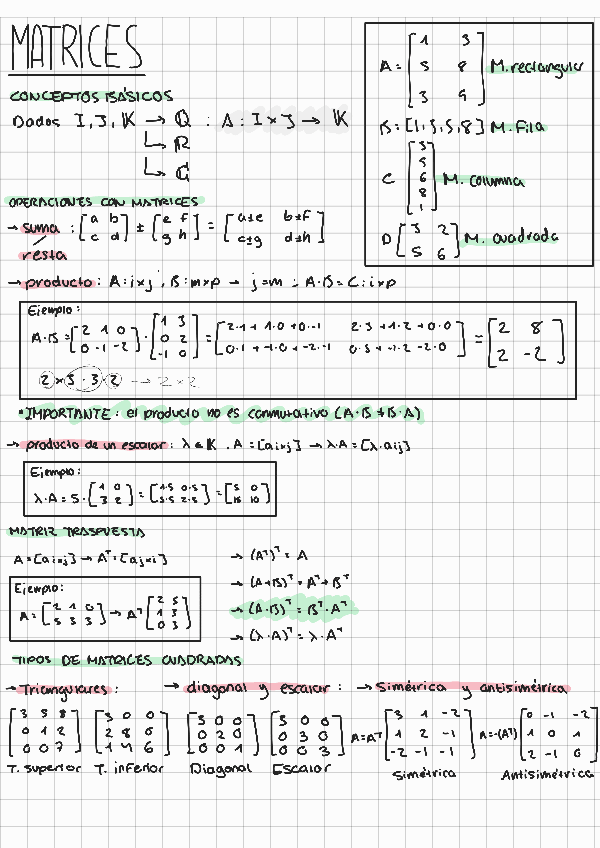 MATRICES
CONCEPTOS BÁSICOS
Dados I, J, K → Q : A : I × J → K
↳ R
↳ C
A = [1 3
5 8
3 9] M. rectangular
B = [1, 3, 5, 8] M. Fila
C [3
5
6
8
1] M. columna
D [3 2
5 6] M. cuadrada
OPERACIONES CON MATRICES
→ suma : [a b
c d] ± [e f
g h] = [a±e b±f
c±g d±h]
resta
→ producto : A : i×j , B : m×p → j = m ; A·B = C : i×p
Ejemplo :
A·B = [2 1 0
0 -1 -2] · [1 3
0 2
-1 0] = [2·1 + 1·0 + 0·-1 2·3 + 1·2 + 0·0
0·1 + -1·0 + -2·-1 0·3 + -1·2 -2·0] = [2 8
2 -2]
2 × 3 · 3 × 2 → 2 × 2
*IMPORTANTE : el producto no es conmutativo (A·B ≠ B·A)
→ producto de un escalar : λ ∈ K , A = [ai×j] → λ·A = [λ·aij]
Ejemplo :
λ·A = 5 · [1 0
3 2] = [1·5 0·5
3·5 2·5] = [5 0
15 10]
MATRIZ TRASPUESTA
A = [ai×j] → Aᵀ = [aj×i]
Ejemplo :
A = [2 1 0
5 3 3] → Aᵀ [2 5
1 3
0 3]
→ (Aᵀ)ᵀ = A
→ (A+B)ᵀ = Aᵀ + Bᵀ
→ (A·B)ᵀ = Bᵀ · Aᵀ
→ (λ·A)ᵀ = λ·Aᵀ
TIPOS DE MATRICES CUADRADAS
→ Triangulares :
[3 5 8
0 1 2
0 0 7]
T. superior
[3 0 0
2 8 0
1 4 6]
T. inferior
→ diagonal y escalar :
[3 0 0
0 2 0
0 0 1]
Diagonal
[3 0 0
0 3 0
0 0 3]
Escalar
→ Simétrica y antisimétrica
A = Aᵀ [3 1 -2
1 2 -1
-2 -1 -1]
Simétrica
A = -(Aᵀ) [0 -1 -2
1 0 1
2 -1 0]
Antisimétrica